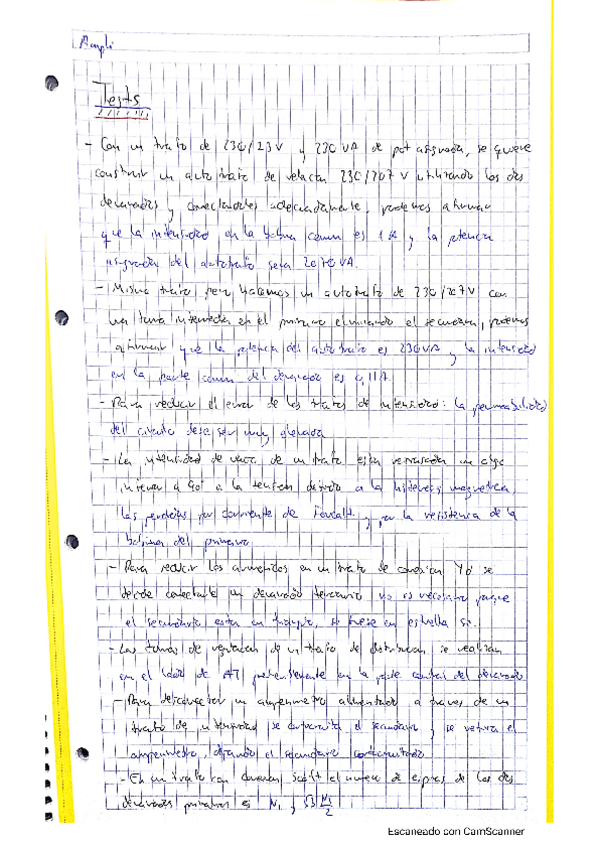 Ampli
Tests
- Con un trafo de 230/23 V y 230 VA de pot asignada, se quiere
construir un autotrafo de relación 230/207 V utilizando los dos
devanados y conectandolos adecuadamente, podemos afirmar
que la intensidad en la bobina común es 1 A y la potencia
asignada del autotrafo será 2070 VA.
- Mismo trafo, pero hacemos un autotrafo de 230/207V con
una toma intermedia en el primario eliminando el secundario, podemos
afirmar que la potencia del autotrafo es 230VA y la intensidad
en la parte comun del devanado es 0,11A.
- Para reducir el error de los trafos de intensidad: la permeabilidad
del circuito debe ser muy elevada
- La intensidad de vacio de un trafo esta retrasada un algo
inferior a 90º a la tension debido a la histeresis magnetica,
las perdidas por corriente de Foucalt y por la resistencia de la
bobina del primario
- Para reducir los armonicos en un trafo de conexion Yd se
decide conectarle un devanado terciario no es necesario porque
el secundario esta en triangulo, si fuese en estrella si.
- Las tomas de regulacion de un trafo de distribucion se realizan
en el lado de AT preferiblemente en la parte central del devanado
- Para desconectar un amperimetro alimentado a traves de un
trafo de intensidad se cortocircuita el secundario y se retira el
amperimetro, dejando el secundario cortocircuitado
- En un trafo con conexion Scott el numero de espiras de los dos
devanados primarios es N₁ y √3 N₁/2
Escaneado con CamScanner